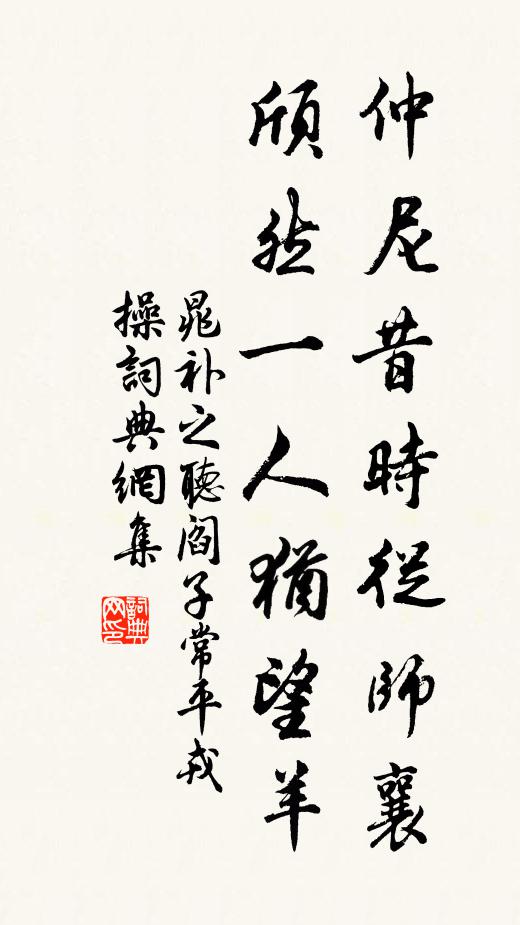 仲尼昔時從師襄
頎然一人猶望羊
晁補之聽閻子常平戎
操詞典網集
詞典网印